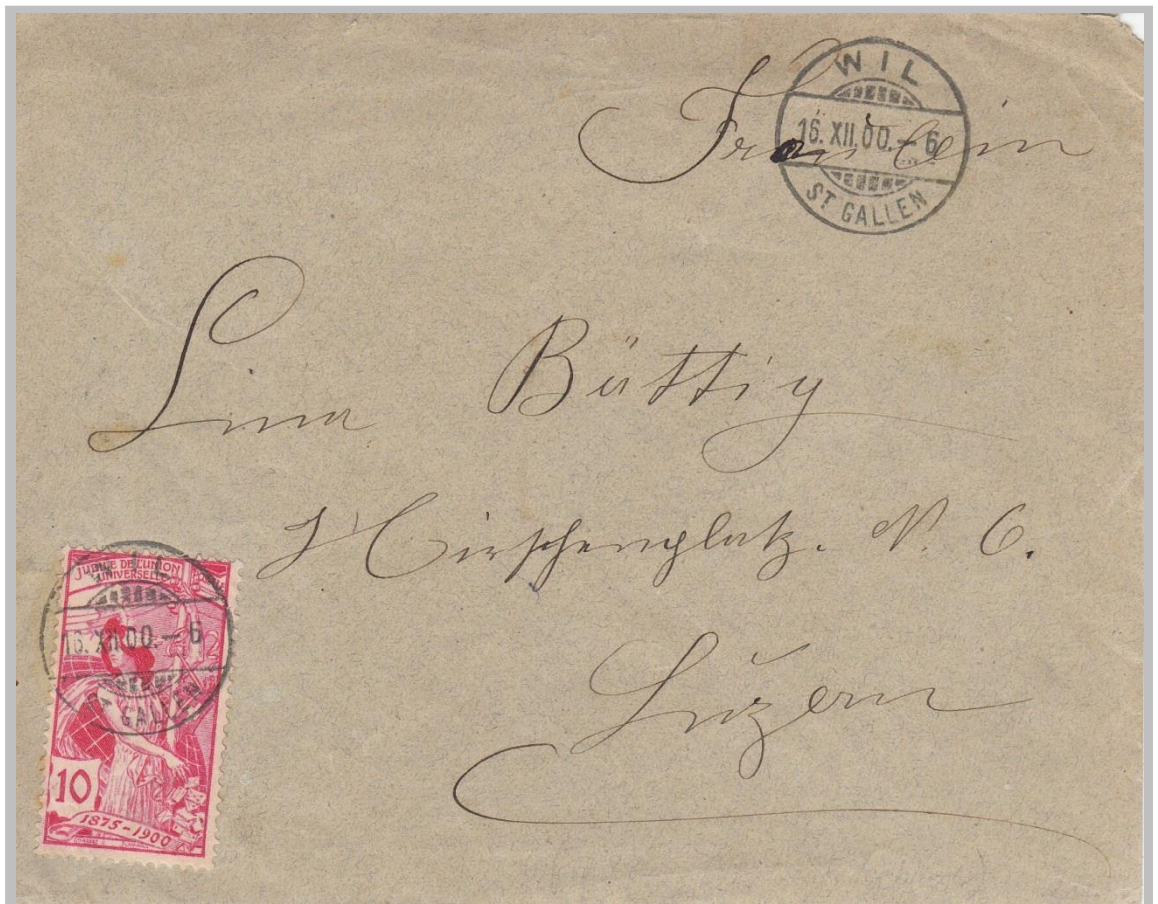 Fräulein
WIL
16.XII.00.-6
ST GALLEN
Lina Büttig
Hirschenplatz. N. 6.
Luzern
JUBILÉ DE L'UNION
UNIVERSELLE
WIL
16.XII.00.-6
ST GALLEN
10
1875-1900